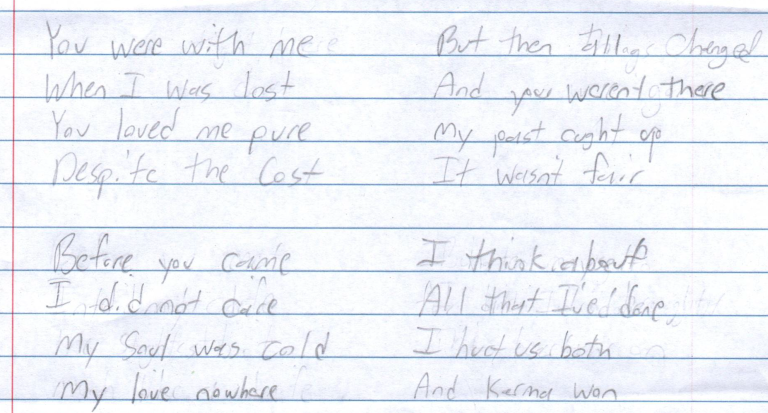 You were with me
When I was lost
You loved me pure
Despite the Cost
Before you came
I did not care
My Soul was cold
My love nowhere
But then things Changed
And you weren't there
My past cught up
It wasn't fair
I think about
All that I've done
I hurt us both
And Karma won